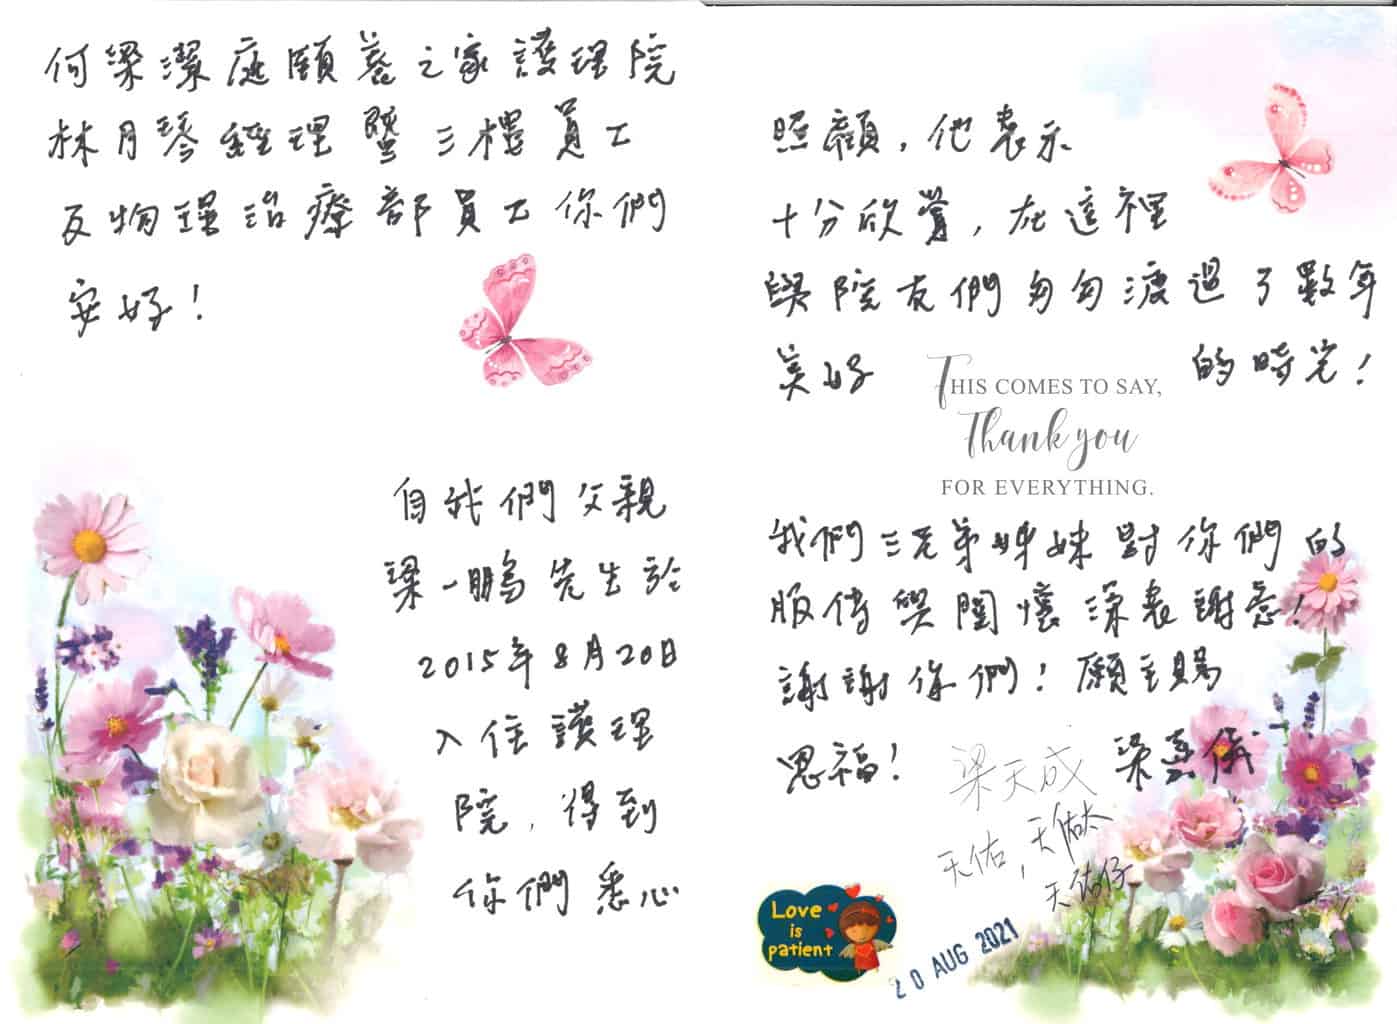 何梁潔庭頤養之家護理院
林月琴經理暨三樓員工
及物理治療部員工你們
安好！
自我們父親
梁一鵬先生於
2015年8月20日
入住護理
院，得到
你們悉心
照顧，他表示
十分欣賞，在這裡
與院友們匆匆渡過了數年
美好 的時光！
THIS COMES TO SAY,
Thank you
FOR EVERYTHING.
我們三兄弟姊妹對你們的
服侍與關懷深表謝意！
謝謝你們！願主賜
恩福！ 梁天成 梁熹儀
天佑，天佑太
天佑仔
Love
is
patient
20 AUG 2021